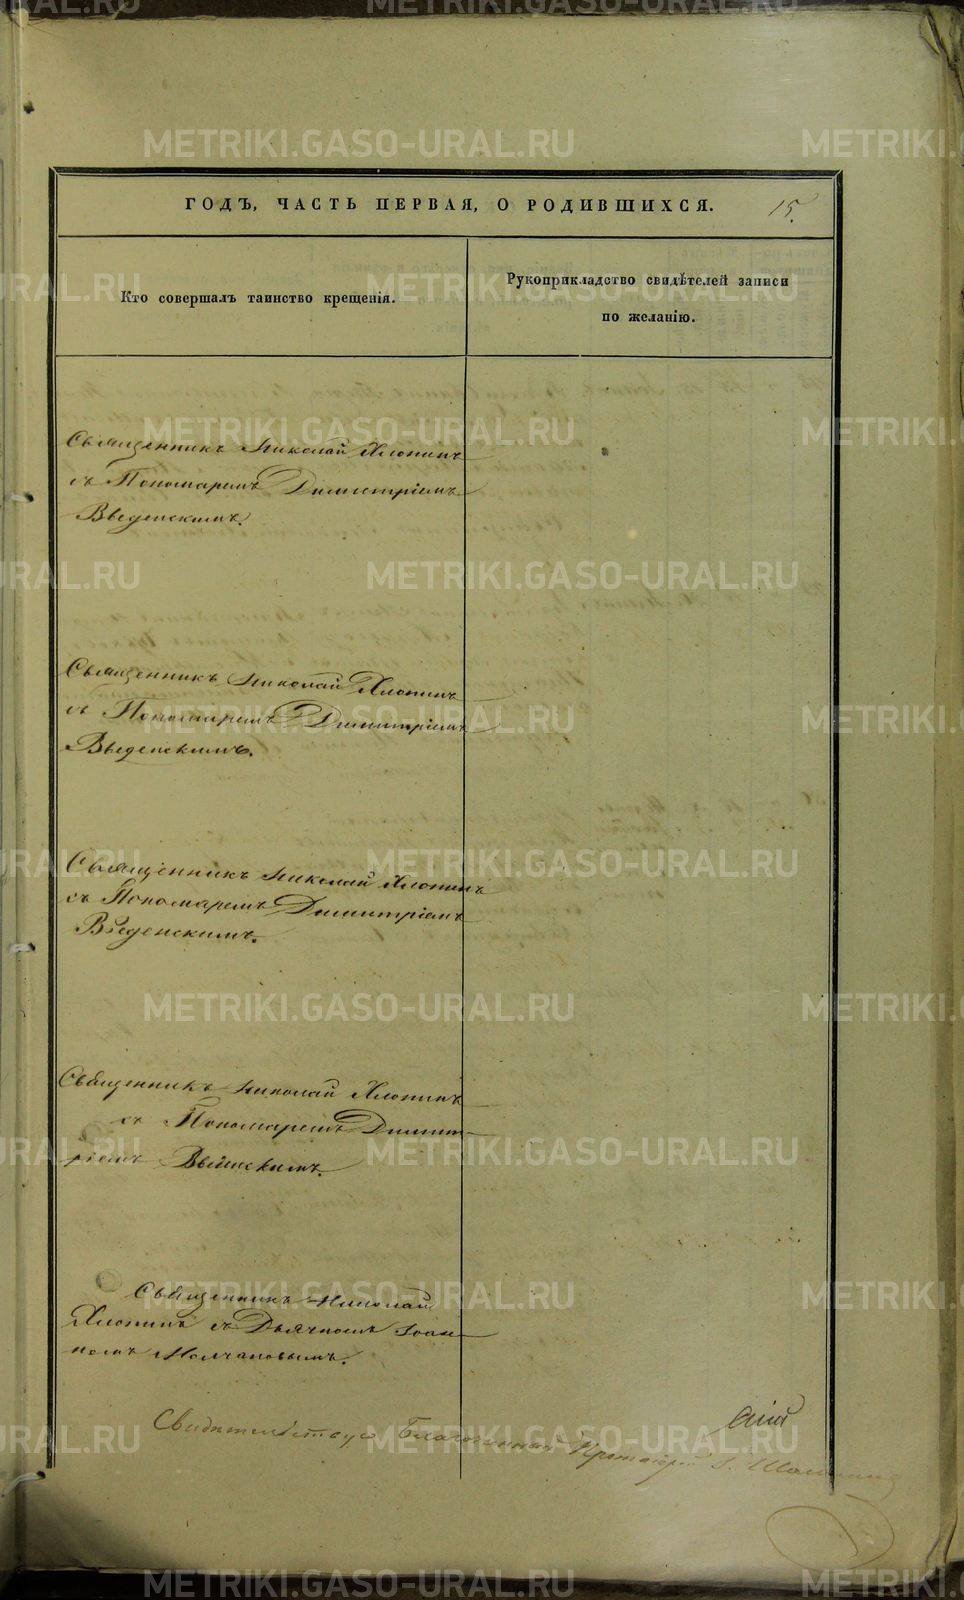 ГОДЪ, ЧАСТЬ ПЕРВАЯ, О РОДИВШИХСЯ.
15.
Кто совершалъ таинство крещенія.
Рукоприкладство свидѣтелей записи
по желанію.
Священникъ Николай Хлопинъ
съ Пономаремъ Димитріемъ
Введенскимъ.
Священникъ Николай Хлопинъ
съ Пономаремъ Димитріемъ
Введенскимъ.
Священникъ Николай Хлопинъ
съ Пономаремъ Димитріемъ
Введенскимъ.
Священникъ Николай Хлопинъ
съ Пономаремъ Димит-
ріемъ
Священникъ Николай
Хлопинъ съ Дьячкомъ Іоан-
номъ Молчановымъ.
Свидѣтельствую Благочинный Протоіерей
METRIKI.GASO-URAL.RU